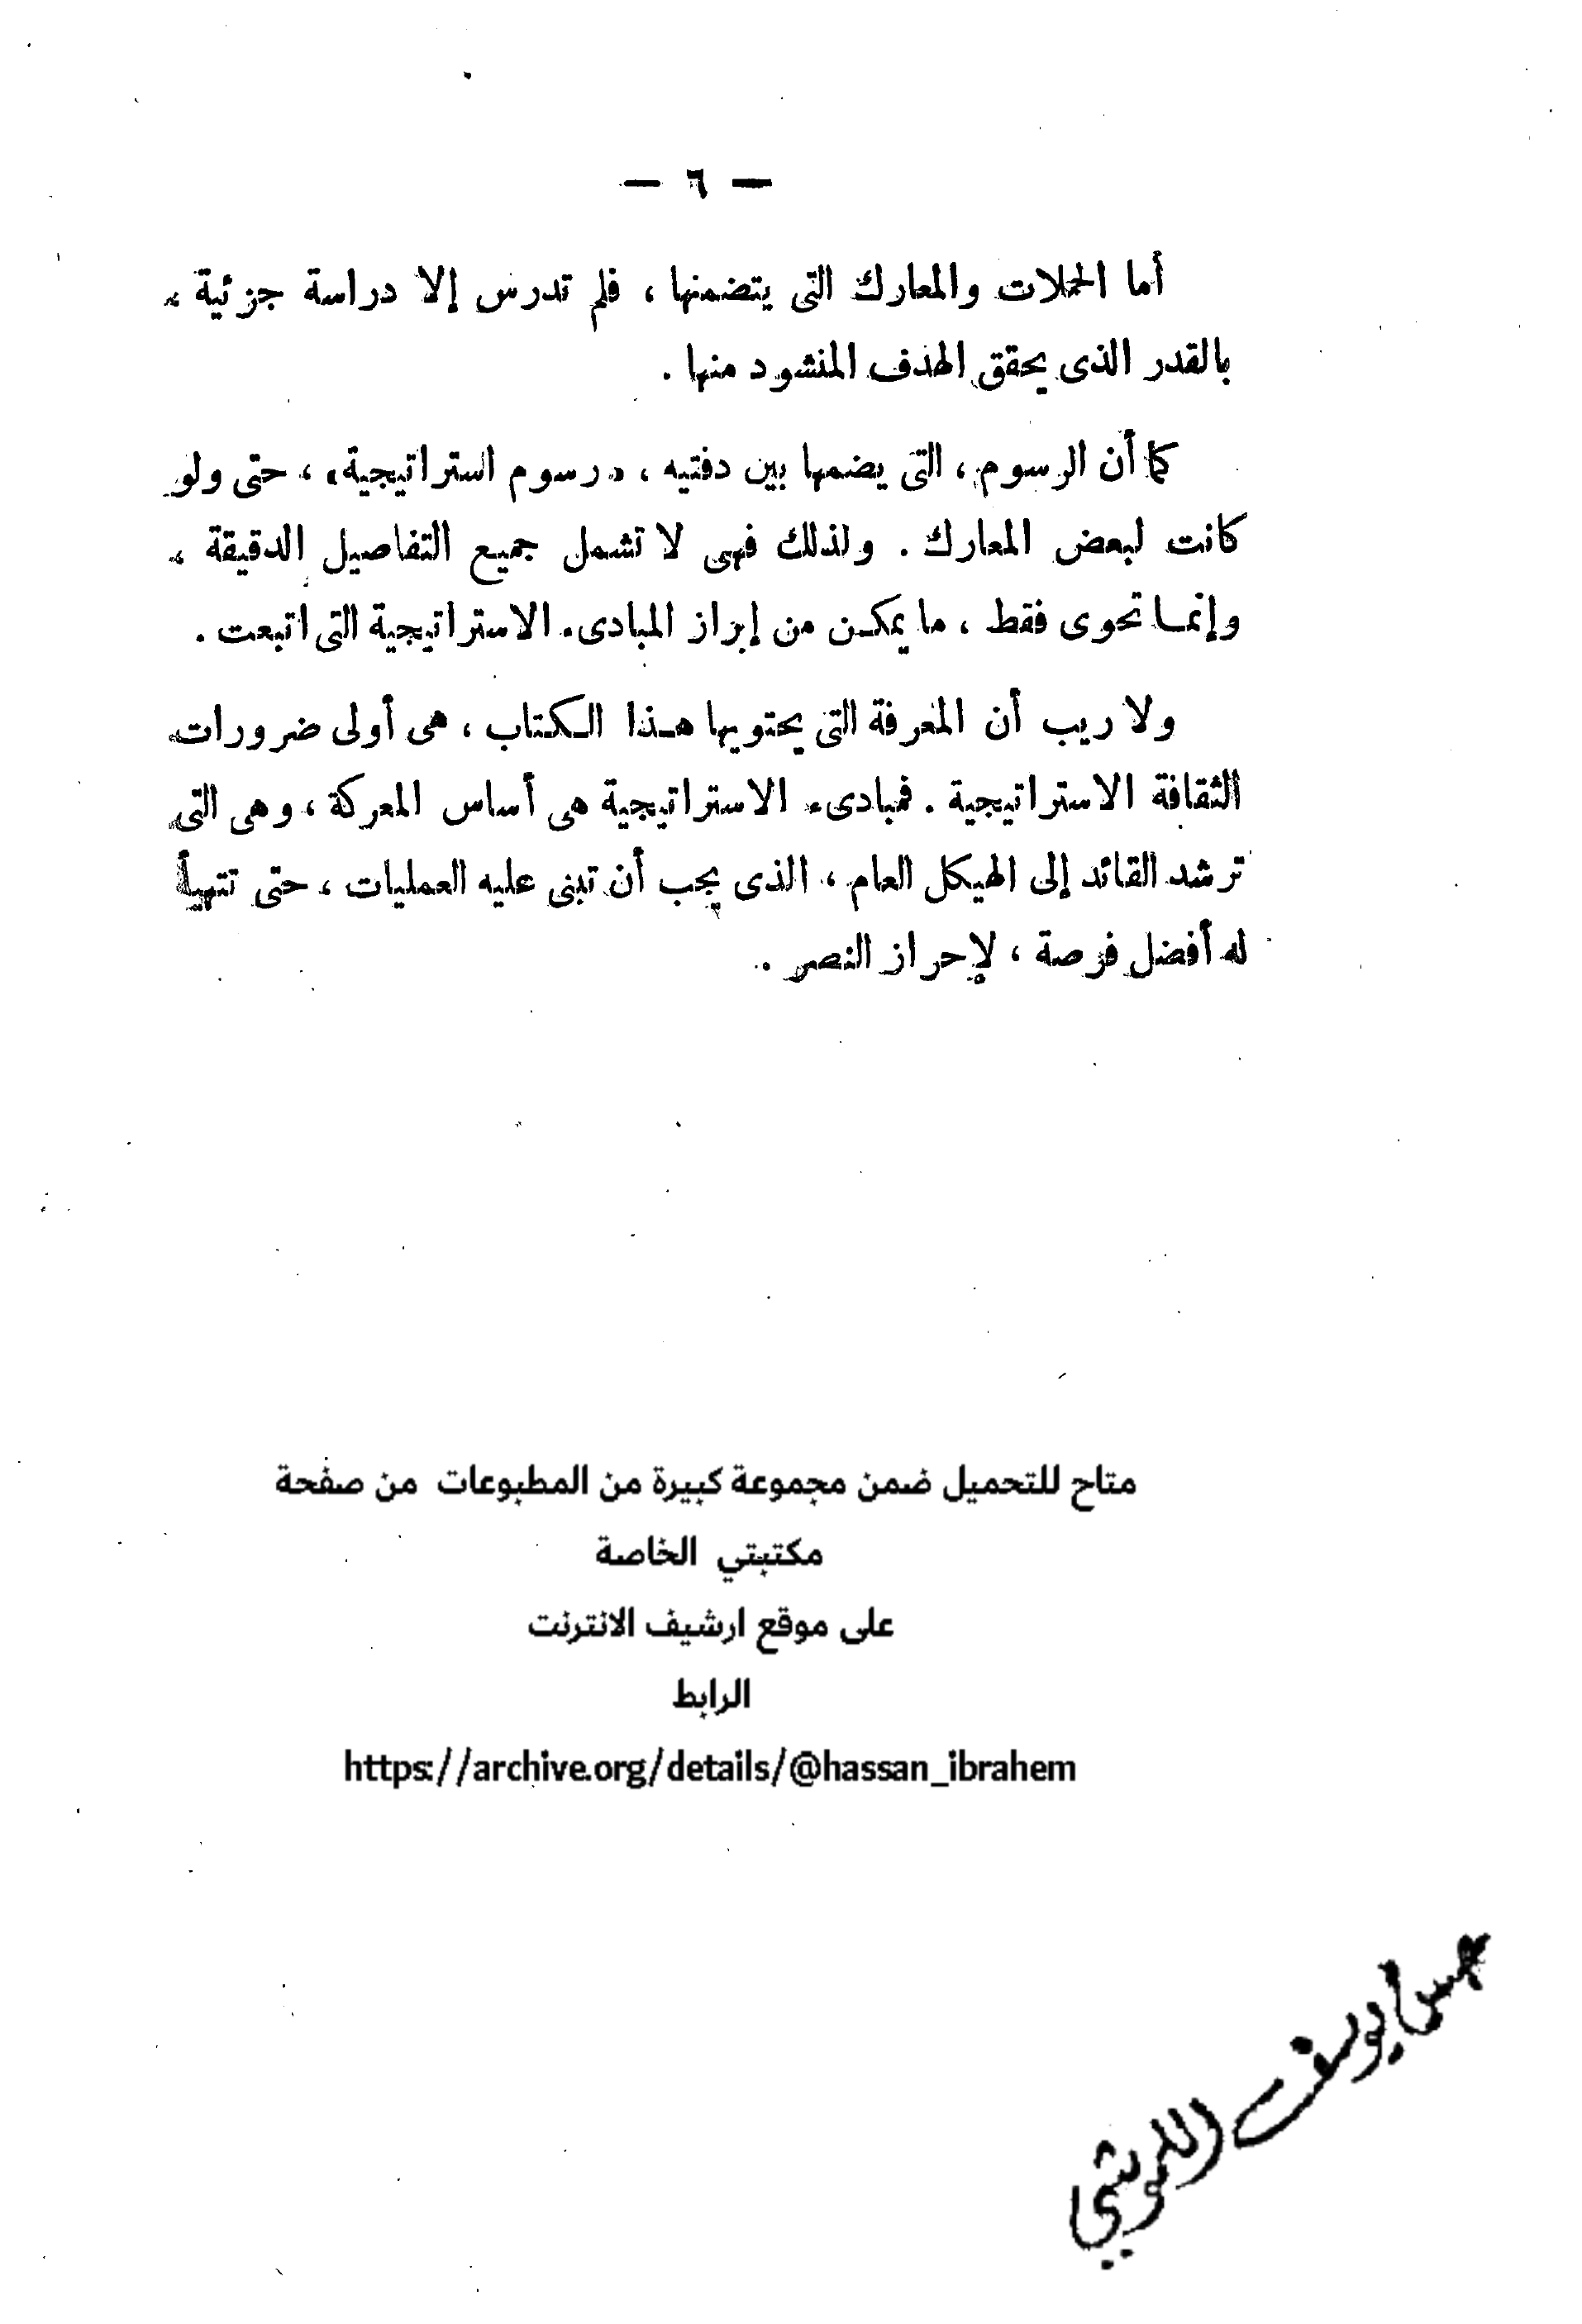 — ٦ —
أما الحملات والمعارك التى يتضمنها ، فلم تدرس إلا دراسة جزئية ،
بالقدر الذى يحقق الهدف المنشود منها .
كما أن الرسوم ، التى يضمها بين دفتيه ، «رسوم استراتيجية» ، حتى ولو
كانت لبعض المعارك . ولذلك فهى لا تشمل جميع التفاصيل الدقيقة ،
وإنمـا تحوى فقط ، ما يمكـن من إبراز المبادىء الاستراتيجية التى اتبعت .
ولا ريب أن المعرفة التى يحتويها هـذا الـكتاب ، هى أولى ضرورات
الثقافة الاستراتيجية . فمبادىء الاستراتيجية هى أساس المعركة ، وهى التى
ترشد القائد إلى الهيكل العام ، الذى يجب أن تبنى عليه العمليات ، حتى تتهيأ
له أفضل فرصة ، لإحراز النصر .
متاح للتحميل ضمن مجموعة كبيرة من المطبوعات من صفحة
مكتبتي الخاصة
على موقع ارشيف الانترنت
الرابط
https://archive.org/details/@hassan_ibrahem
يوسف